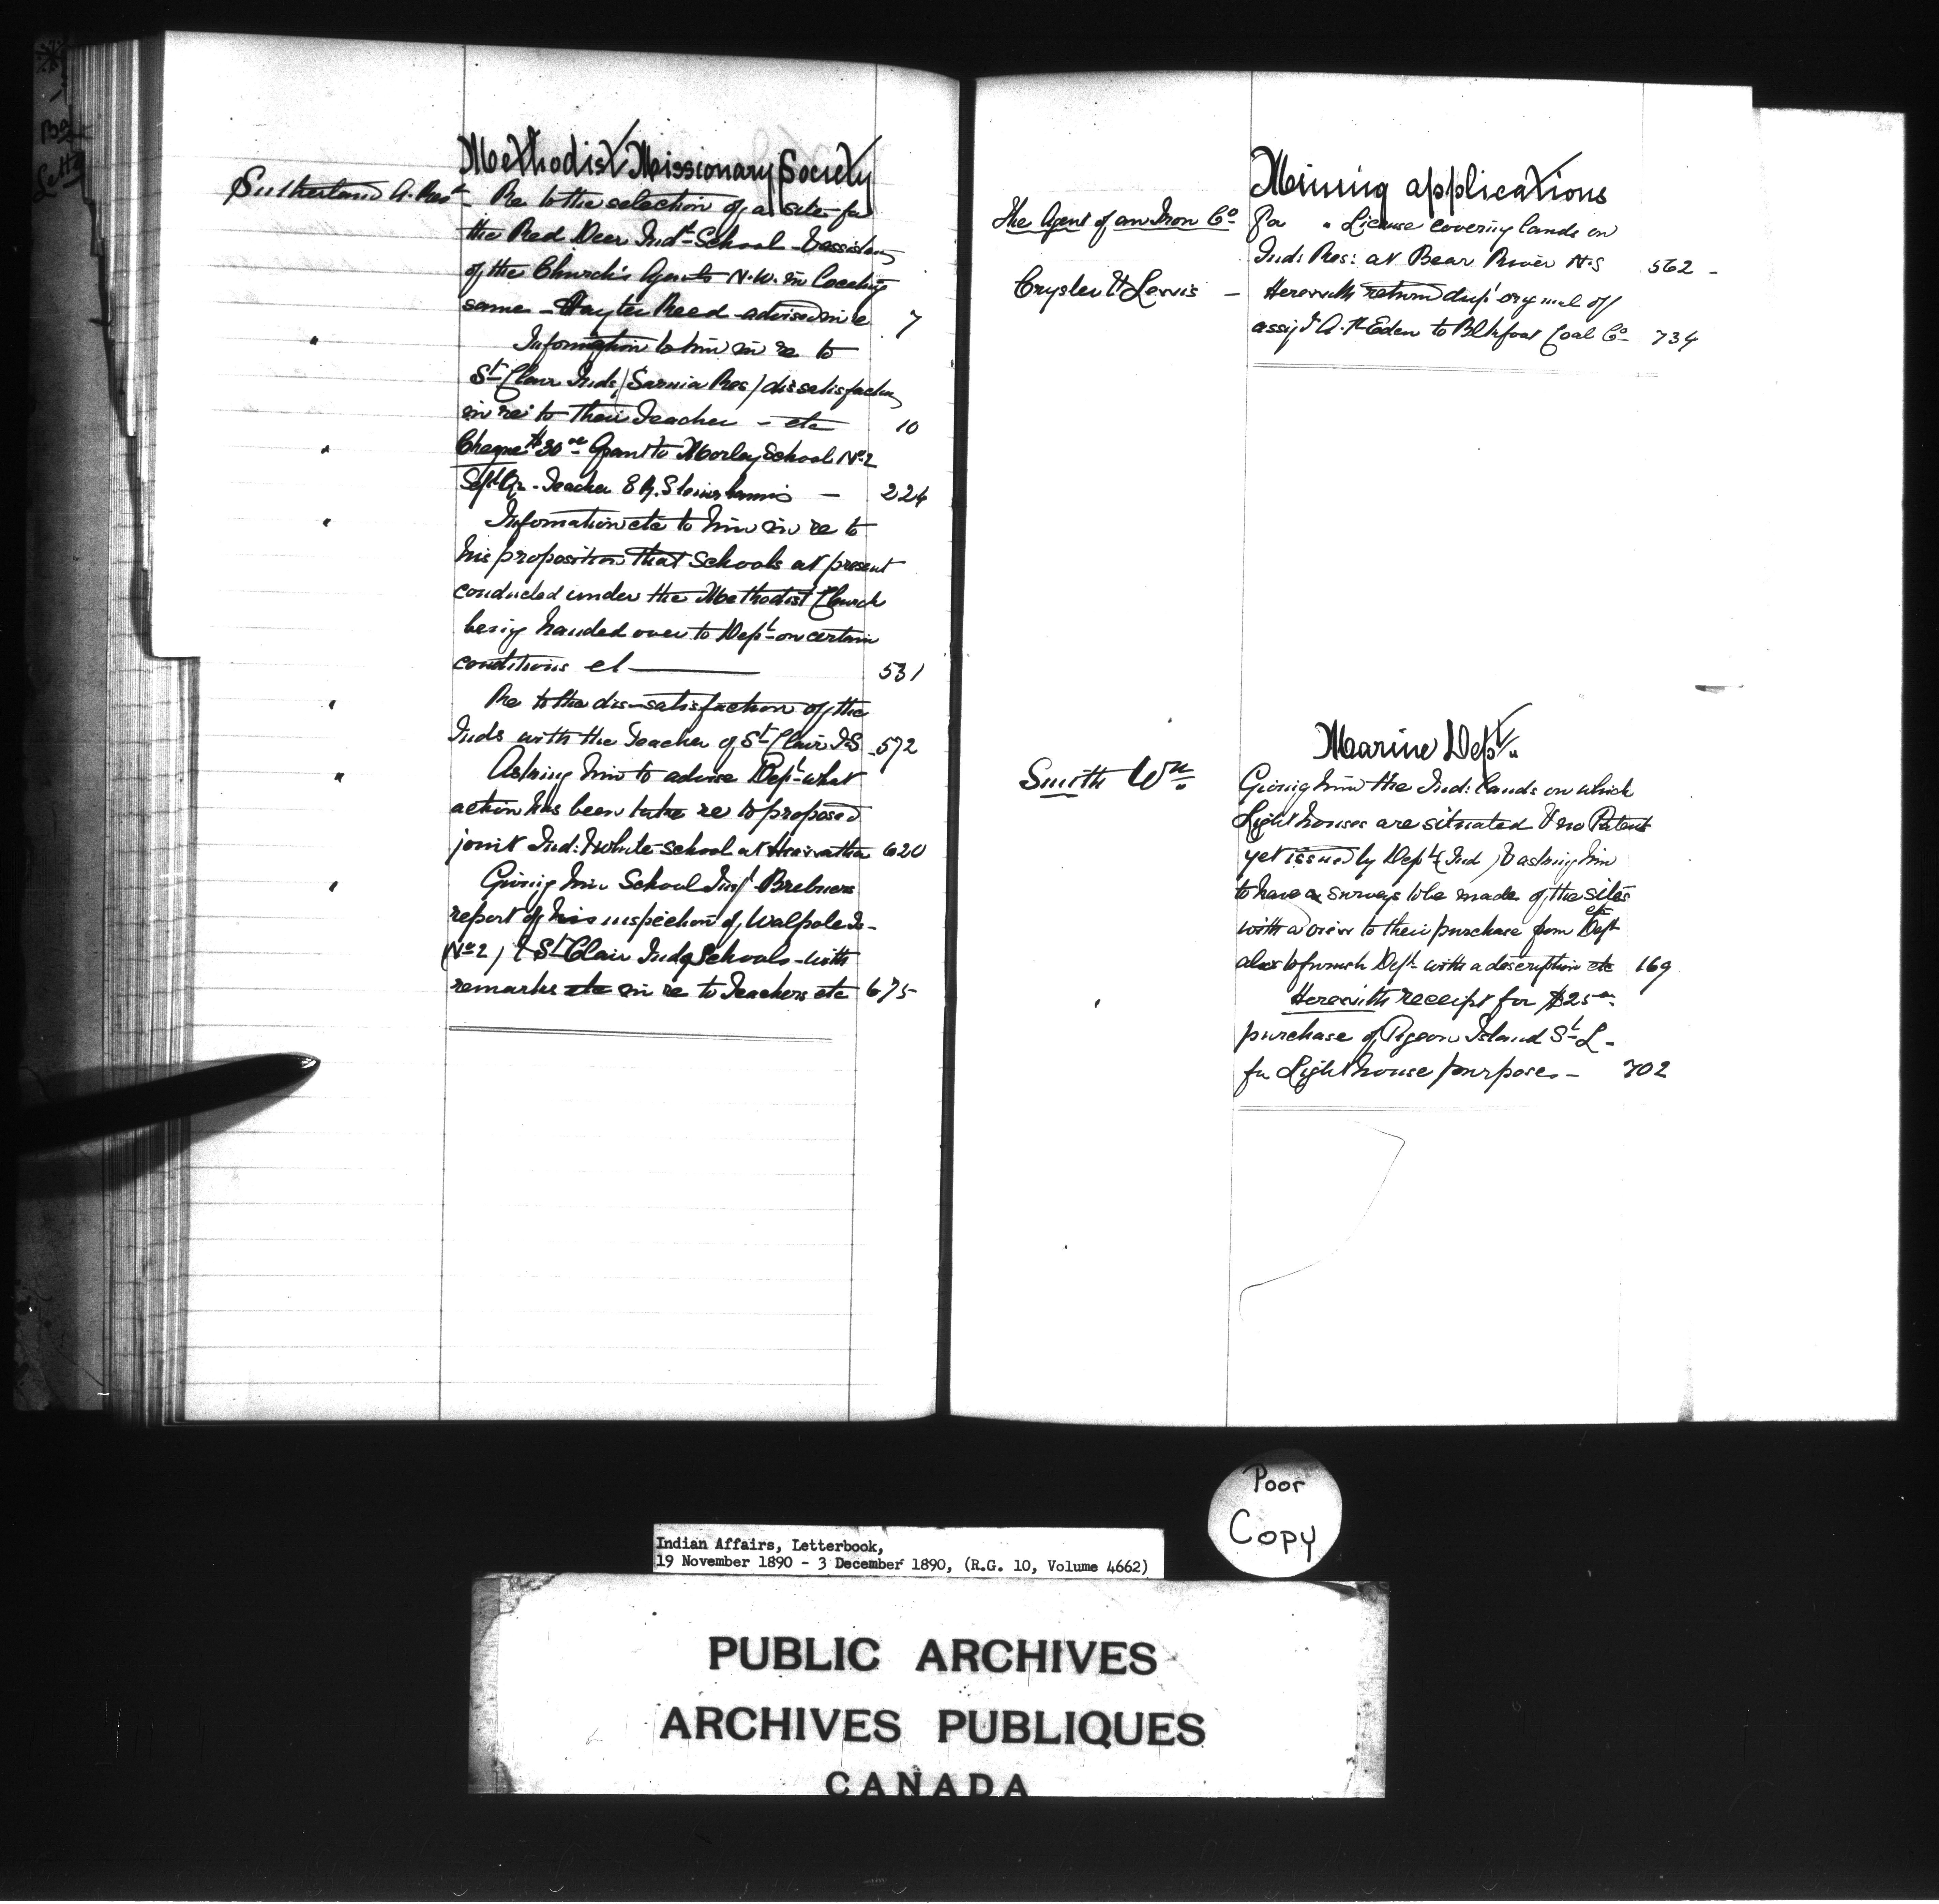 Methodist Missionary Society
Sutherland A. Rev - Re to the selection of a site for
the Red Deer Indl School - & assistance
of the Church's Agents N.W. in locating
same - Hayter Reed advised in re 7
" Information to him in re to
St Clair Inds (Sarnia Res) dissatisfaction
in re to their Teacher - etc 10
" Cheque $30.00 Grant to Morley School No 2
Sept Qr - Teacher E R. Steinhauer - 224
" Information etc to him in re to
his proposition that Schools at present
conducted under the Methodist Church
being handed over to Dept on certain
conditions et 531
" Re to the dis-satisfaction of the
Inds with the Teacher of St Clair I.S. 572
" Asking him to advise Dept what
action has been take re to proposed
joint Ind: & white school at Hiawatha 620
" Giving him School Insp Brebners
report of his inspection of Walpole Is -
(No 2) & St Clair Indn Schools - with
remarks etc in re to Teachers etc 675
Mining applications
The Agent of an Iron Co For " License covering lands on
Ind: Res: at Bear River N.S 562 -
Crysler & Lewis - Herewith return dup original of
assigt A. R Eden to Blkfoot Coal Co 734
Marine Dept "
Smith Wm Giving him the Ind: lands on which
Light houses are situated & no Patent
yet issued by Dept (Ind) & asking him
to have a surveys to be made of the sites
with a view to their purchase from Dept etc
also to furnish Dept with a description etc 169
" Herewith receipt for $25.00
purchase of Pigeon Island St L -
for Light house purposes - 702
Poor
Copy
Indian Affairs, Letterbook,
19 November 1890 - 3 December 1890, (R.G. 10, Volume 4662)
PUBLIC ARCHIVES
ARCHIVES PUBLIQUES
CANADA